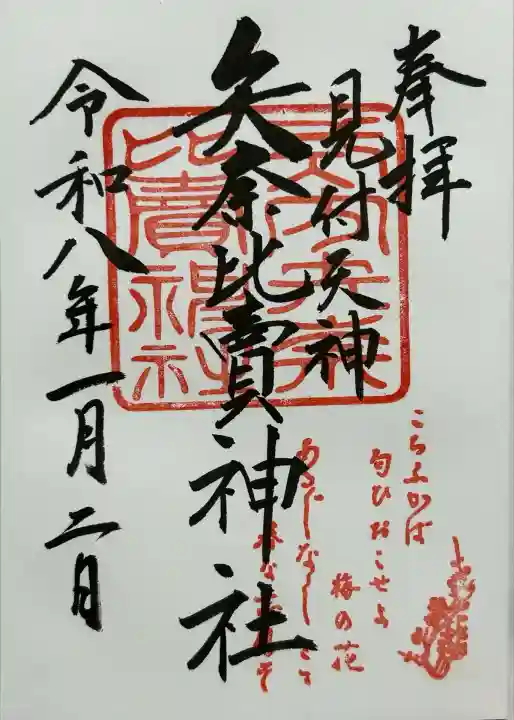 奉拝
見付天神
矢奈比賣神社
令和八年一月二日
こちふかば
匂ひおこせよ
梅の花
あるじなしとて
春な
そ